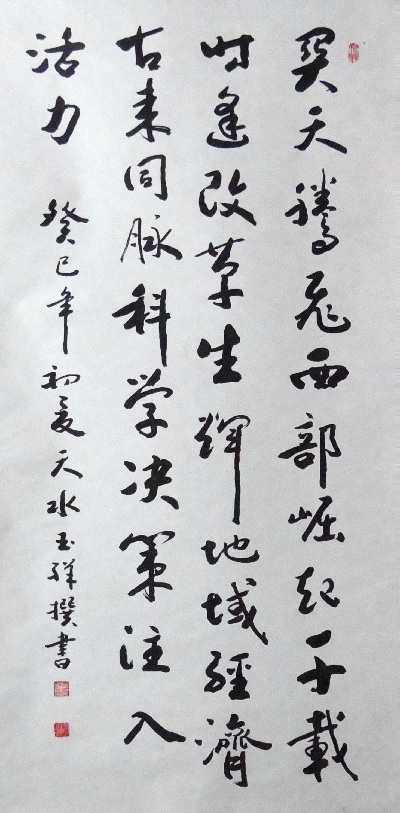 關天騰飛西部崛起千載
時逢改革生輝地域經濟
古来同脉科学决策注入
活力 癸巳年初夏天水玉祥撰書